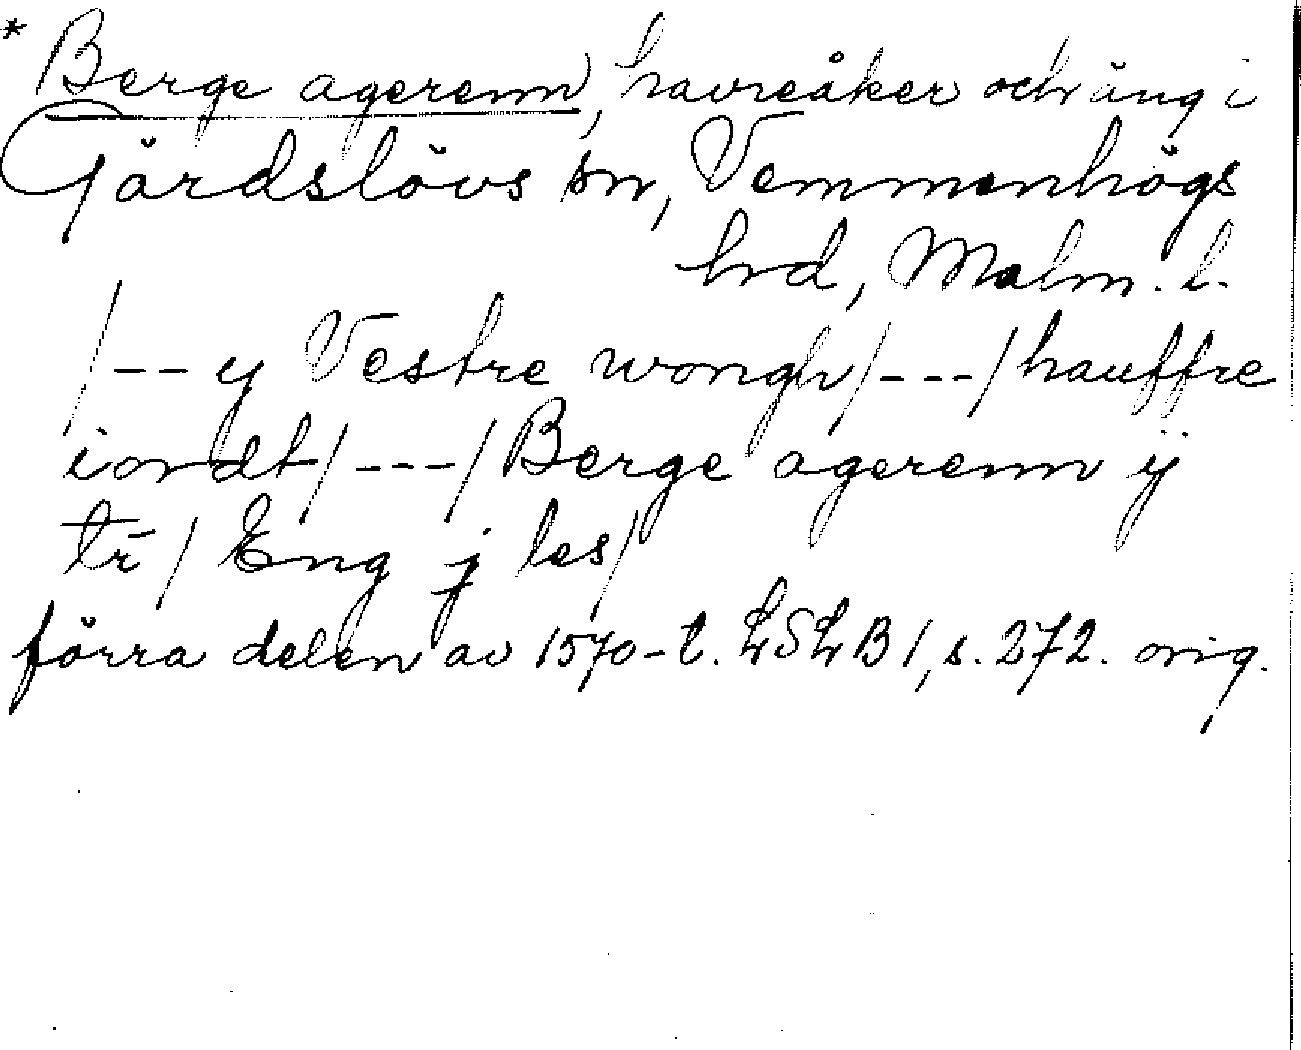 * Berge agerenn, havreåker och äng i
Gärdslövs sn, Vemmenhögs
hrd, Malm. l.
/-- y Vestre wongh/---/hauffre
iordt/---/Berge agerenn ÿ
tr̄ / Eng j les/
förra delen av 1570-t. LSLB 1, s. 272. orig.